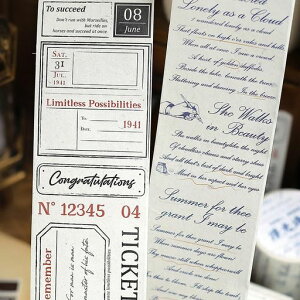 To succeed
Don't run with Marseilles,
but ride on
horses and succeed at once
08
June
SAT.
31
JUL.
1941
Limitless Possibilities
Date
1941
To
Congratulations
N° 12345 04
TICKET
Remember
Lonely as a Cloud
I wandered lonely as a cloud
That floats on high o'er vales and hills
When all at once I saw a crowd
A host of golden daffodils
Beside the lake, beneath the trees
Fluttering and dancing in the breeze
She Walks
in Beauty
She walks in beauty, like the night
Of cloudless climes and starry skies
And all that's best of dark and bright
Meet in her aspect and her eyes
Summer for thee
grant I may be
Summer for thee, grant I may be
When summer days are flown